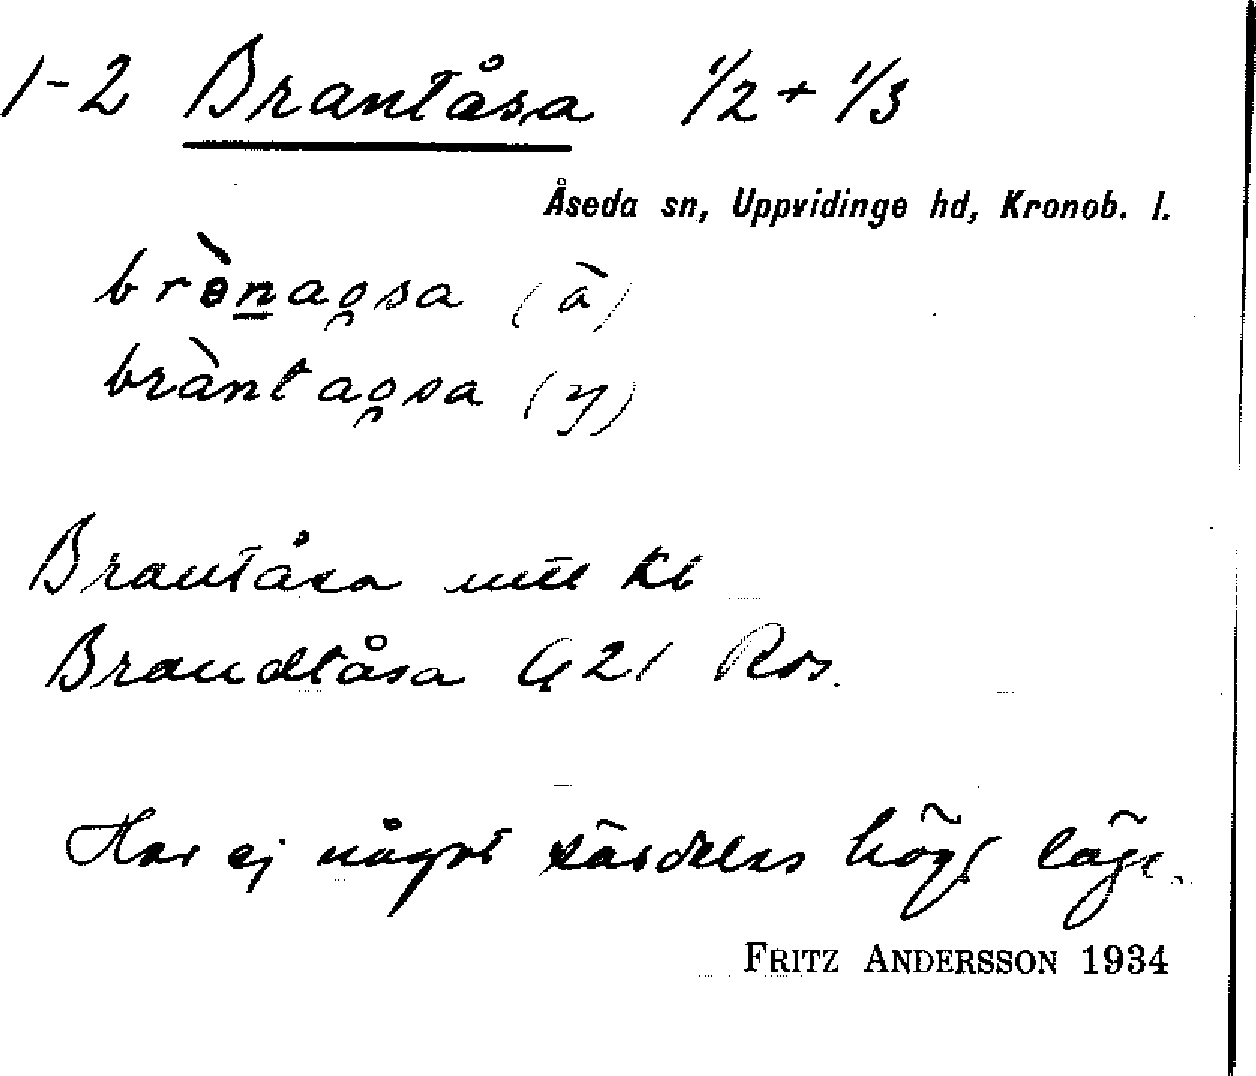 1-2 Brantåsa 1/2 + 1/3
Åseda sn, Uppvidinge hd, Kronob. l.
brènago̯sa (à)
bràntago̯sa (y)
Brantåsa utt Kb
Brandtåsa G 21 Ros.
Har ej något särdeles högt läge.
FRITZ ANDERSSON 1934